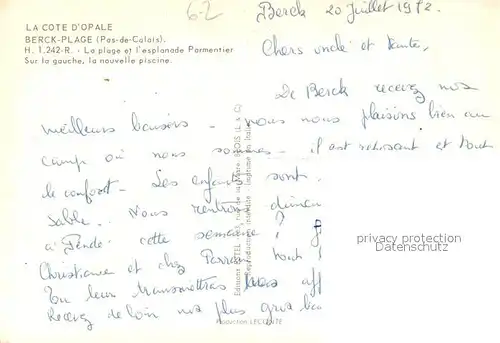 6-2
LA COTE D'OPALE
BERCK-PLAGE (Pas-de-Calais).
H. 1.242-R. - La plage et l'esplanade Parmentier
Sur la gauche, la nouvelle piscine.
Berck 20 Juillet 1972.
Chers oncle et tante,
De Berck recevez nos
meilleurs baisers - nous nous plaisons bien au
camp où nous sommes - il est reposant et tout
le confort - Les enfants sont
sable. Nous rentrons diman
à cette semaine ?
Christiane et chez tout
Tu leur transmettras nos aff
Recevez de loin nos plus gros bai
Production LECONTE
privacy protection
watermark